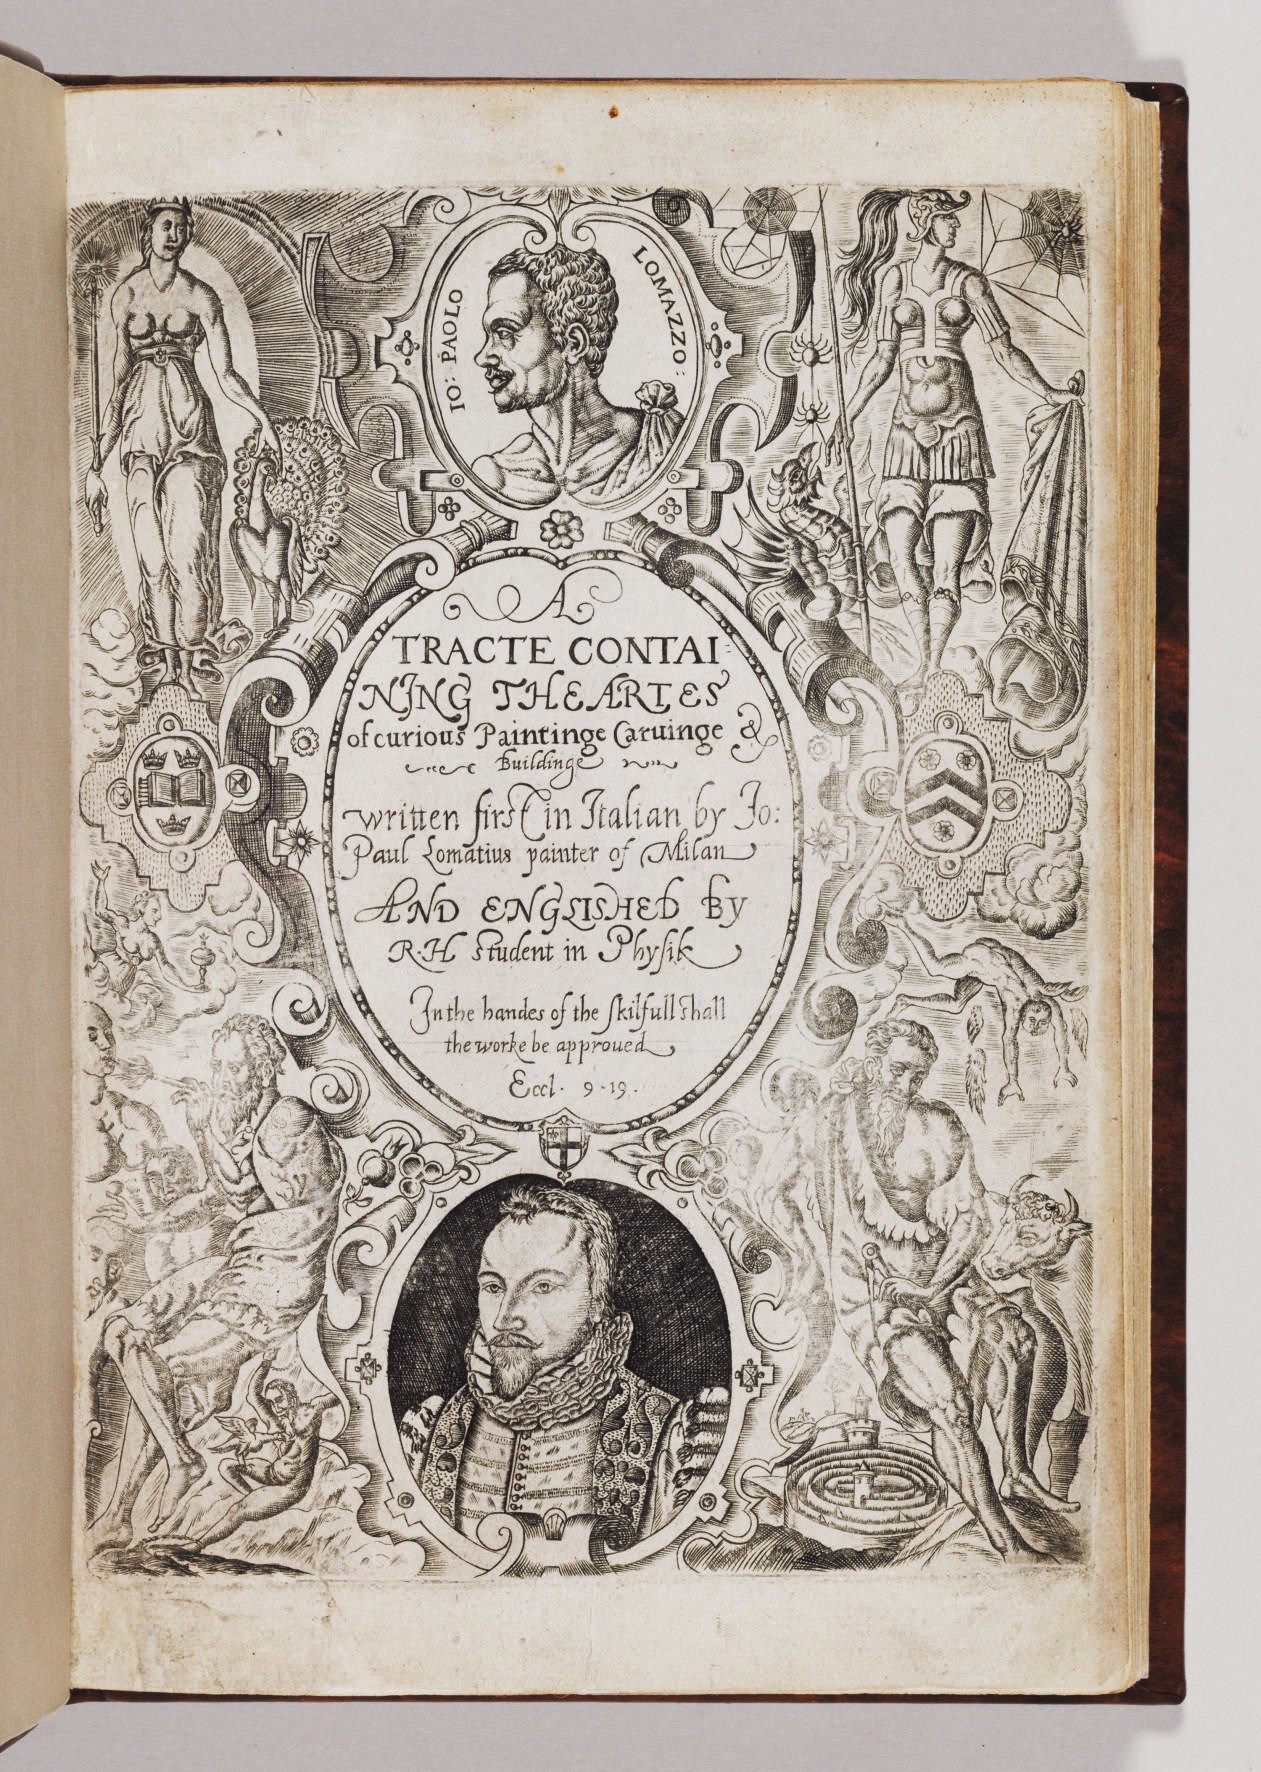 IO: PAOLO LOMAZZO:
A
TRACTE CONTAI
NING THE ARTES
of curious Paintinge Caruinge &
Buildinge
written first in Italian by Jo:
Paul Lomatius painter of Milan
AND ENGLISHED BY
R·H student in Physik
In the handes of the skilfull shall
the worke be approued
Eccl· 9·19·